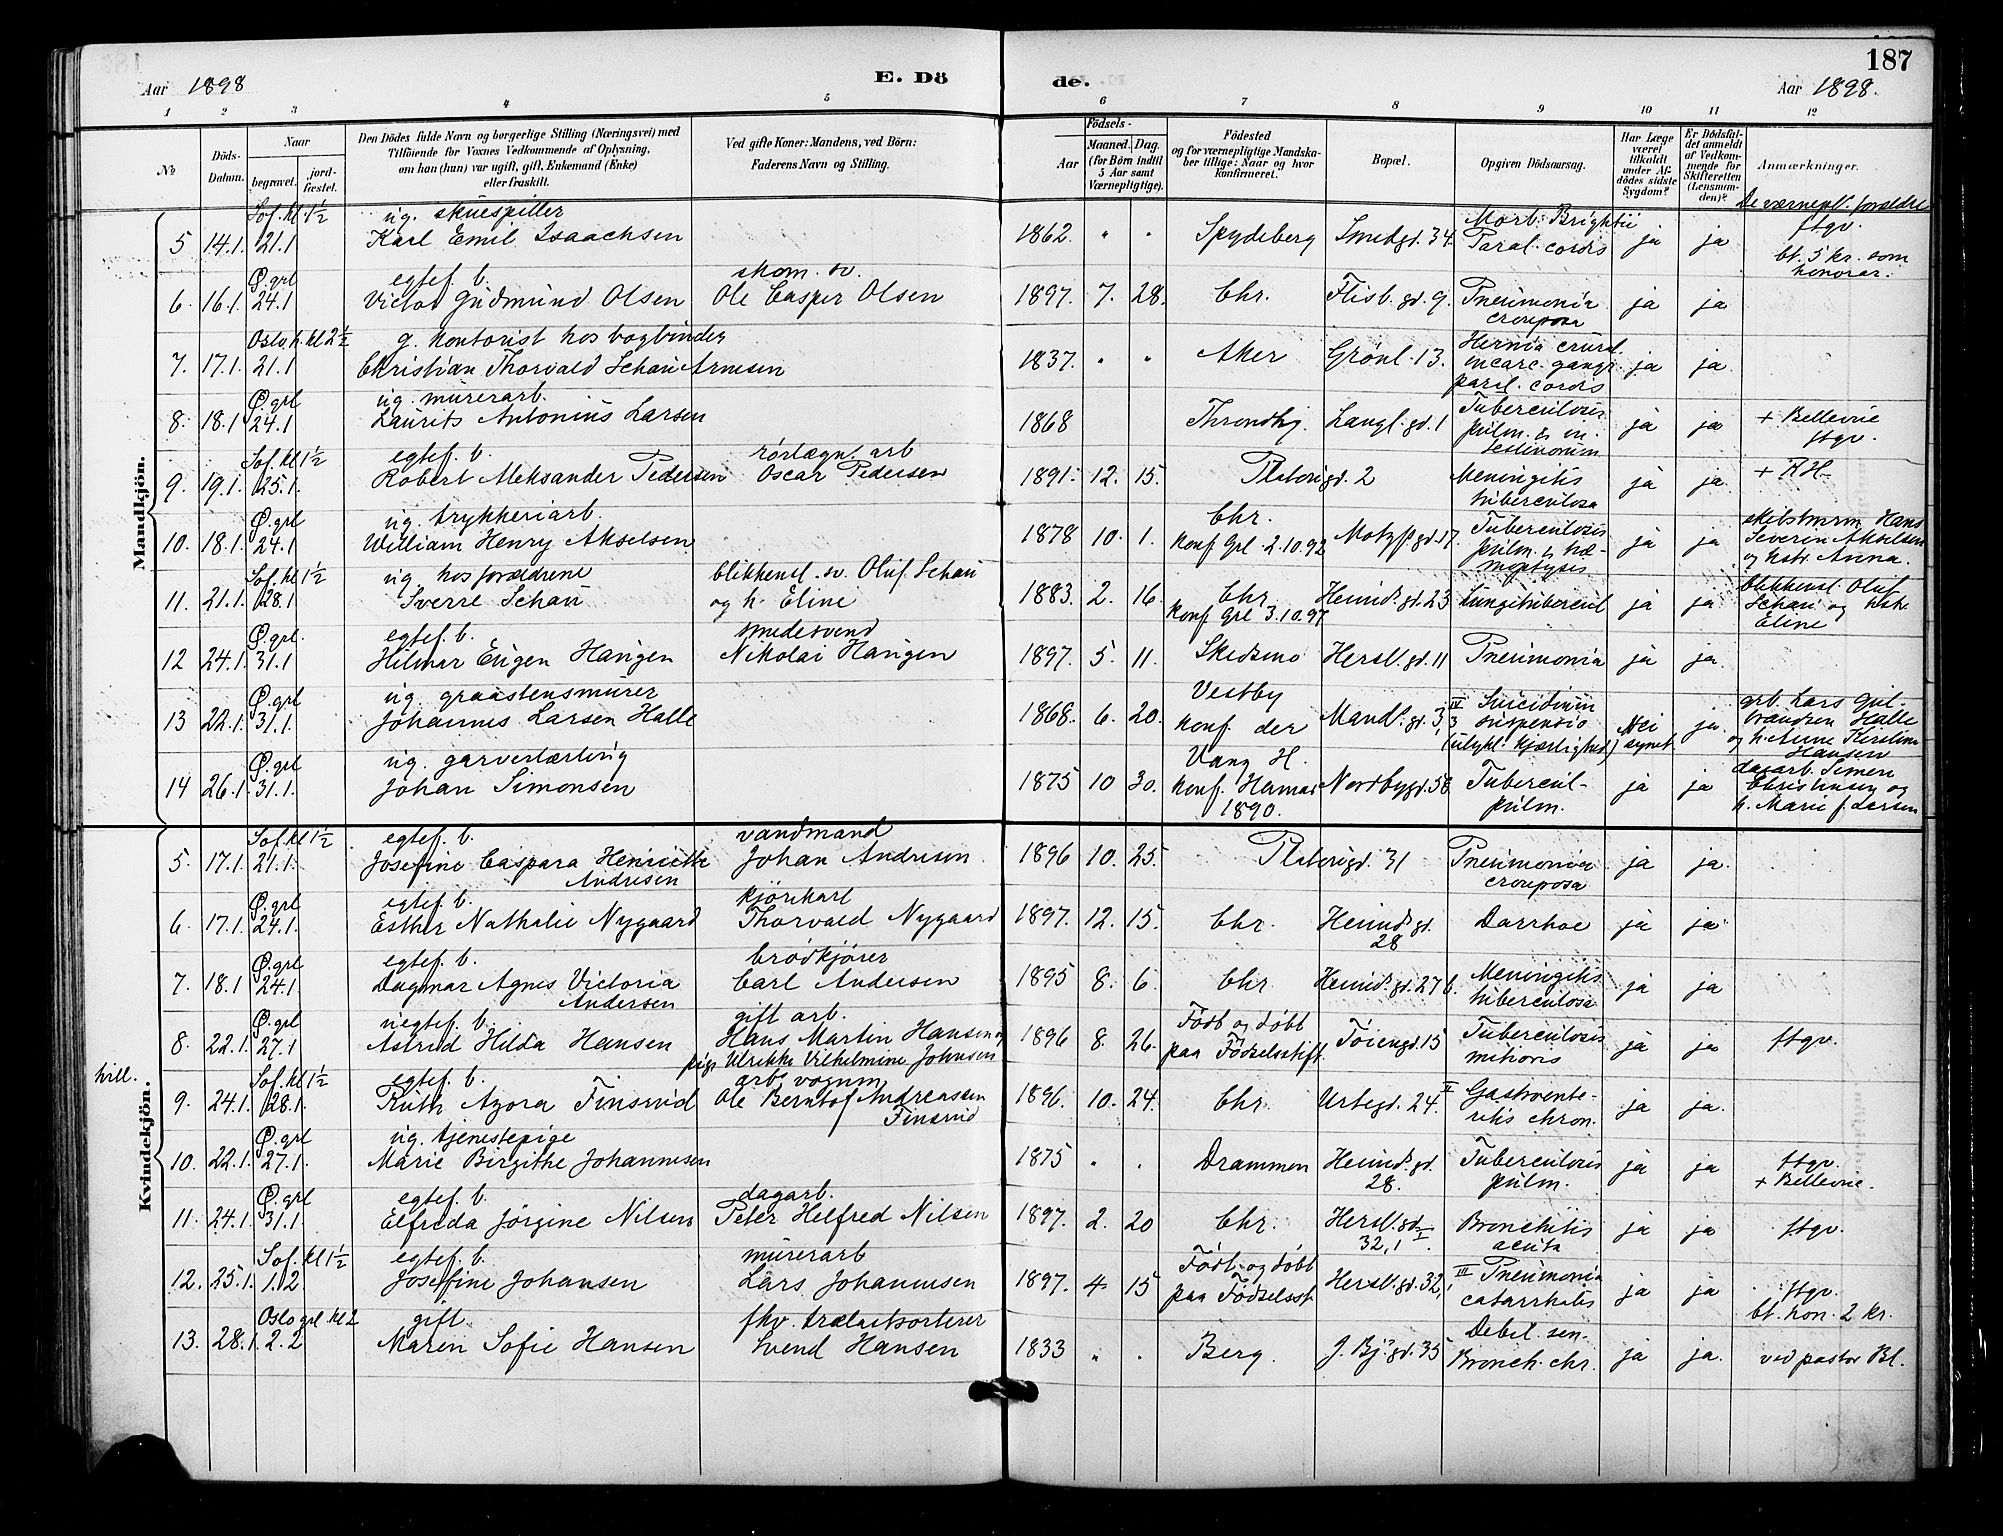 187
Aar 1898
E. Dö de.
Aar 1898.
1 2 3 4 5 6 7 8 9 10 11 12
No
Döds-Datum.
Naar
begravet.
jord-fæstet.
Den Dödes fulde Navn og borgerlige Stilling (Næringsvei) med
Tilföiende for Voxnes Vedkommende af Oplysning,
om han (hun) var ugift, gift, Enkemand (Enke)
eller fraskilt.
Ved gifte Koner: Mandens, ved Börn:
Faderens Navn og Stilling.
Födsels-
Aar
Maaned. Dag.
(for Börn indtil
5 Aar samt
Værnepligtige).
Födested
og for værnepligtige Mandska-
ber tillige: Naar og hvor
konfirmeret.
Bopæl.
Opgiven Dödsaarsag.
Har Læge
været
tilkaldt
under Af-
dödes sidste
Sygdom?
Er Dödsfal-
det anmeldt
af Vedkom-
mende for
Skifteretten
(Lensman-
den)?
Anmærkninger.
De værnepl. forældre
Mandkjön.
Sof. kl 1½ ug. skuespiller Morb. Brightii ftgv.
5 14.1. 21.1 Karl Emil Isaachsen 1862. " " Spydeberg Smedgd. 34. Paral. cordis ja ja bt. 5 kr. som
honorar.
Ø. grl egtef. b. skom. sv.
6. 16.1. 24.1 Victor Gudmund Olsen Ole Casper Olsen 1897. 7. 28. Chr. Flisb. gd. 9. Pneumonia ja ja
crouposa
Oslo k. kl 2½ g. kontorist hos bogbinder Hernia crural.
7. 17.1. 21.1 Christian Thorvald Schau Arnesen 1837. " " Aker Grönl. 13. incarc. gangr. ja ja.
paral. cordis
Ø. grl ug. murerarb. Tuberculosis
8. 18.1 24.1. Laurits Antonius Larsen 1868 Throndhj. Langl. gd. 1 pulm. & in- ja ja + Bellevue
testinorum ftgv.
Sof. kl 1½ egtef. b. rörlægn. arb
9. 19.1. 25.1. Robert Aleksander Pedersen Oscar Pedersen 1891. 12. 15. Platousgd. 2 Meningitis ja ja. + RH
tuberculosa
Ø. grl ug. trykkeriarb. Chr. Tuberculosis skibstmrm Hans
10. 18.1. 24.1 William Henry Akselsen 1878 10. 1. konf Grl 2.10.92 Motzf. gd. 17 pulm. & hæ- ja ja Severin Akselsen
moptysis og hstr. Anna.
Sof. kl 1½ ug. hos forældrene blikkensl. sv. Oluf Schau blikkensl Oluf
11. 21.1. 28.1 Sverre Schau og h. Eline 1883. 2. 16. Chr. Heimd. gd. 23 Lungetubercul ja ja Schau og hstr
konf Grl 3.10.97 Eline
Ø. grl. egtef. b. smedesvend
12 24.1. 31.1 Hilmar Eugen Haugen Nikolai Haugen 1897. 5. 11. Skedsmo Hersl. gd. 11 Pneumonia ja ja.
Ø. grl ug. graastensmurer Vestby Suicidium grb. Lars Gul-
13 22.1. 31.1. Johannes Larsen Halle 1868. 6. 20. konf der Mandl. gd. 3, IV 3 suspensio Nei ja. brandsen Halle
(ulykl. kjærlighed) synet og h. Anne Kirstine
Hansen
Ø. grl ug. garverlærling Vang H. dagarb. Simen
14 26.1. 31.1. Johan Simonsen 1875 10 30. konf. Hamar Nordbygd. 56 Tubercul- ja ja Christensen og
1890. pulm. h. Marie f. Larsen
Kvindekjön.
Sof. kl 1½ egtef. b. vandmand
5 17.1. 21.1. Josefine Caspara Henriette Johan Andresen. 1896 10. 25. Platousgd. 31 Pneumonia ja ja.
Andresen crouposa
Ø. grl egtef. b. kjörekarl
6. 17.1. 24.1. Esther Nathalie Nygaard Thorvald Nygaard 1897. 12. 15. Chr. Heimd. gd. Darrhoe ja ja
28
Ø. grl egtef. b. brödkjörer
7. 18.1 24.1. Dagmar Agnes Victoria Carl Andersen 1895 8. 6. Chr. Heimd. gd. 27 b. Meningitis ja ja
Andersen tuberculosa
Ø. grl uegtef. b. gift arb. Födt og döbt
8. 22.1. 27.1 Astrid Hilda Hansen Hans Martin Hansen og 1896 8. 26. paa Födselsstift. Töiengd. 15 Tuberculosis ja ja ftgv.
pige Ulrikke Vilhelmine Johnsen miliaris
hvill.
Sof. kl 1½ egtef. b. arb. vognm.
9. 24.1. 28.1. Ruth Azora Finsrud Ole Berntof Andreassen 1896. 10. 24. Chr. Urtegd. 24. II Gastroente- ja ja.
Finsrud ritis chron.
Ø. grl ug. tjenestepige
10. 22.1. 27.1. Marie Birgithe Johannesen 1875 " " Drammen Heimd. gd. Tuberculosis ja ja ftgv.
28. pulm. + Bellevue.
Ø. grl egtef. b. dagarb.
11. 24.1. 31.1 Elfreda Jörgine Nilsen Peter Helfred Nilsen 1897. 2. 20 Chr. Hersl. gd. Bronchitis ja ja ftgv.
32, 1 I. acuta
Sof. kl 1½ egtef. b. murerarb Födt og döbt
12. 25.1. 1.2 Josefine Johansen Lars Johannesen 1897. 4 15 paa Födselsst. Hersl. gd. 32, 1 III Pneumonia ja ja ftgv.
catarrhalis bt. hon. 2 kr.
Oslo grl kl 2 gift. fhv. trælastsorterer Debil. sen-
13. 28.1. 2.2 Maren Sofie Hansen Svend Hansen 1833 " " Berg. J. Bj. gd. 35 Bronch. chr. ja ja. ved pastor Bl.